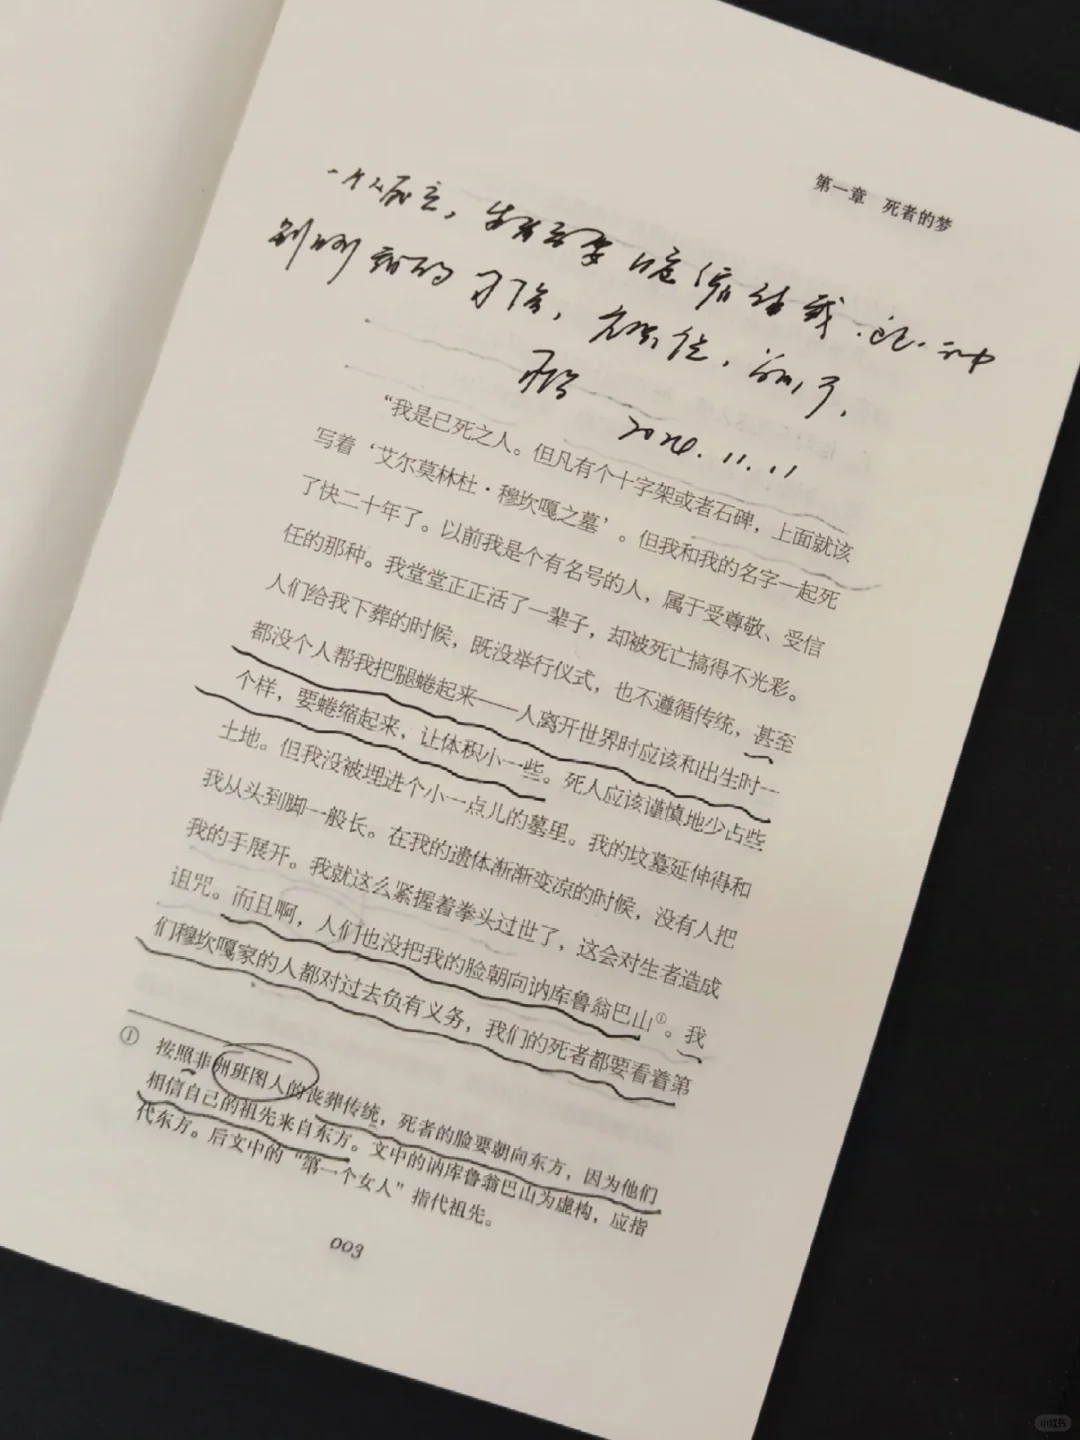 第一章 死者的梦
一个人死亡，
2024.11.11
“我是已死之人。但凡有个十字架或者石碑，上面就该
写着‘艾尔莫林杜·穆坎嘎之墓’。但我和我的名字一起死
了快二十年了。以前我是个有名号的人，属于受尊敬、受信
任的那种。我堂堂正正活了一辈子，却被死亡搞得不光彩。
人们给我下葬的时候，既没举行仪式，也不遵循传统，甚至
都没个人帮我把腿蜷起来——人离开世界时应该和出生时一
个样，要蜷缩起来，让体积小一些。死人应该谨慎地少占些
土地。但我没被埋进个小一点儿的墓里。我的坟墓延伸得和
我从头到脚一般长。在我的遗体渐渐变凉的时候，没有人把
我的手展开。我就这么紧握着拳头过世了，这会对生者造成
诅咒。而且啊，人们也没把我的脸朝向讷库鲁翁巴山①。我
们穆坎嘎家的人都对过去负有义务，我们的死者都要看着第
① 按照非洲班图人的丧葬传统，死者的脸要朝向东方，因为他们
相信自己的祖先来自东方。文中的讷库鲁翁巴山为虚构，应指
代东方。后文中的“第一个女人”指代祖先。
003
小红书